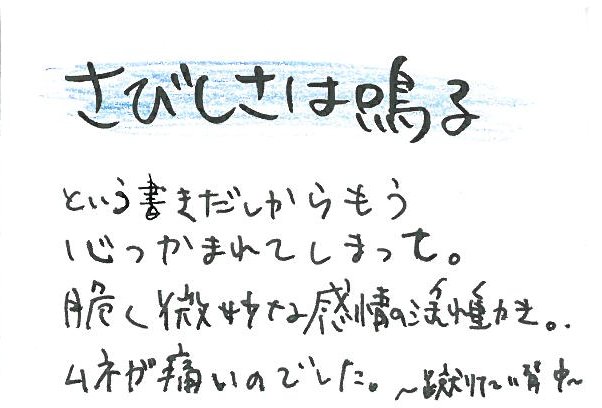 さびしさは鳴る
という書きだしからもう
心つかまれてしまって。
脆く微妙な感情の
ムネが痛いのでした。 ～蹴りたい背中～